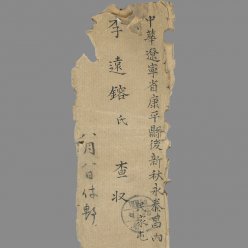 中華遼寧省康平縣後新秋永泰昌內
李遠鎔氏 查收
八月八日